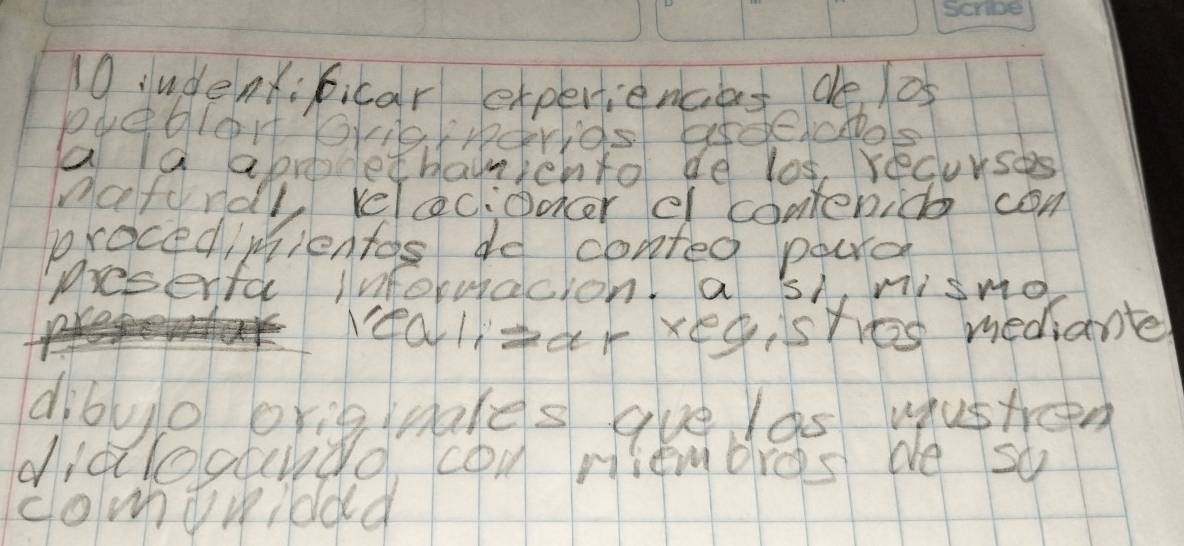 Scribe
10 indentificar experiencias de los
pueblor originarios asoeciados
a la aprovechamiento de los recursos
natural, relacionar el contenido con
procedimientos de conteo para
preserta informacion. a si, mismo
realizar registros mediante
dibujo originales que los mustren
dialogando con miembros de su
comunidad